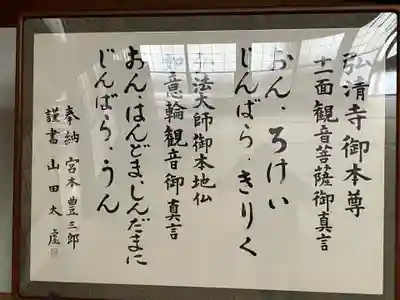 弘清寺御本尊
十一面観音菩薩御真言
おん・ろけい
じんばら・きりく
弘法大師御本地仏
如意輪観音御真言
おん、はんどま、しんだまに
じんばら・うん
奉納 宮本豊三郎
謹書 山田太